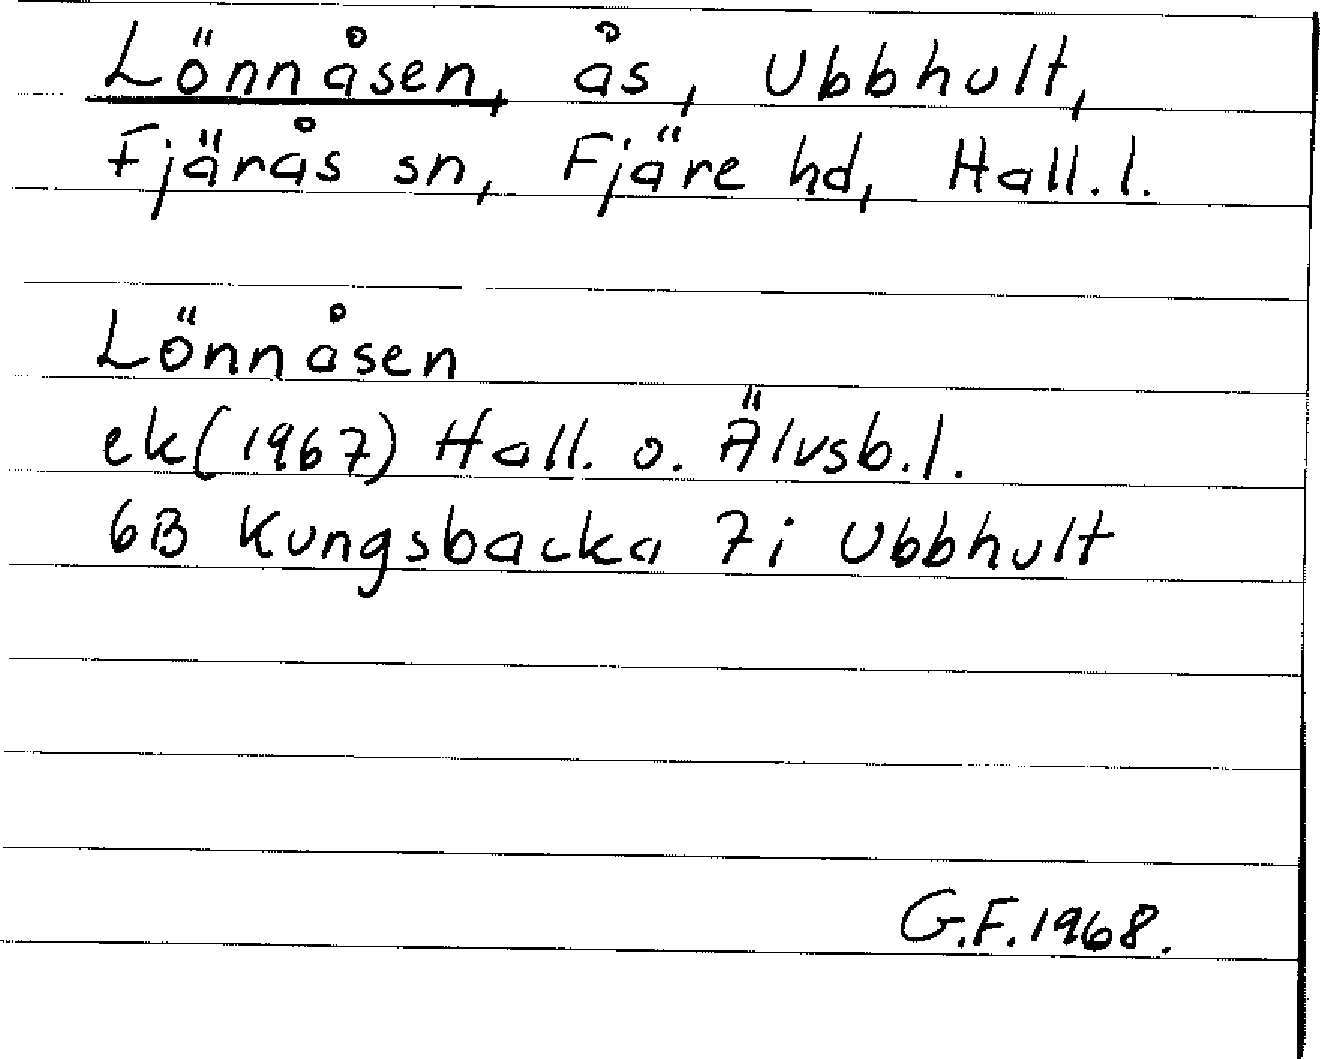 Lönnåsen, ås, Ubbhult,
Fjärås sn, Fjäre hd, Hall.l.
Lönnåsen
ek(1967) Hall. o. Älvsb.l.
6B Kungsbacka 7i Ubbhult
G.F.1968.